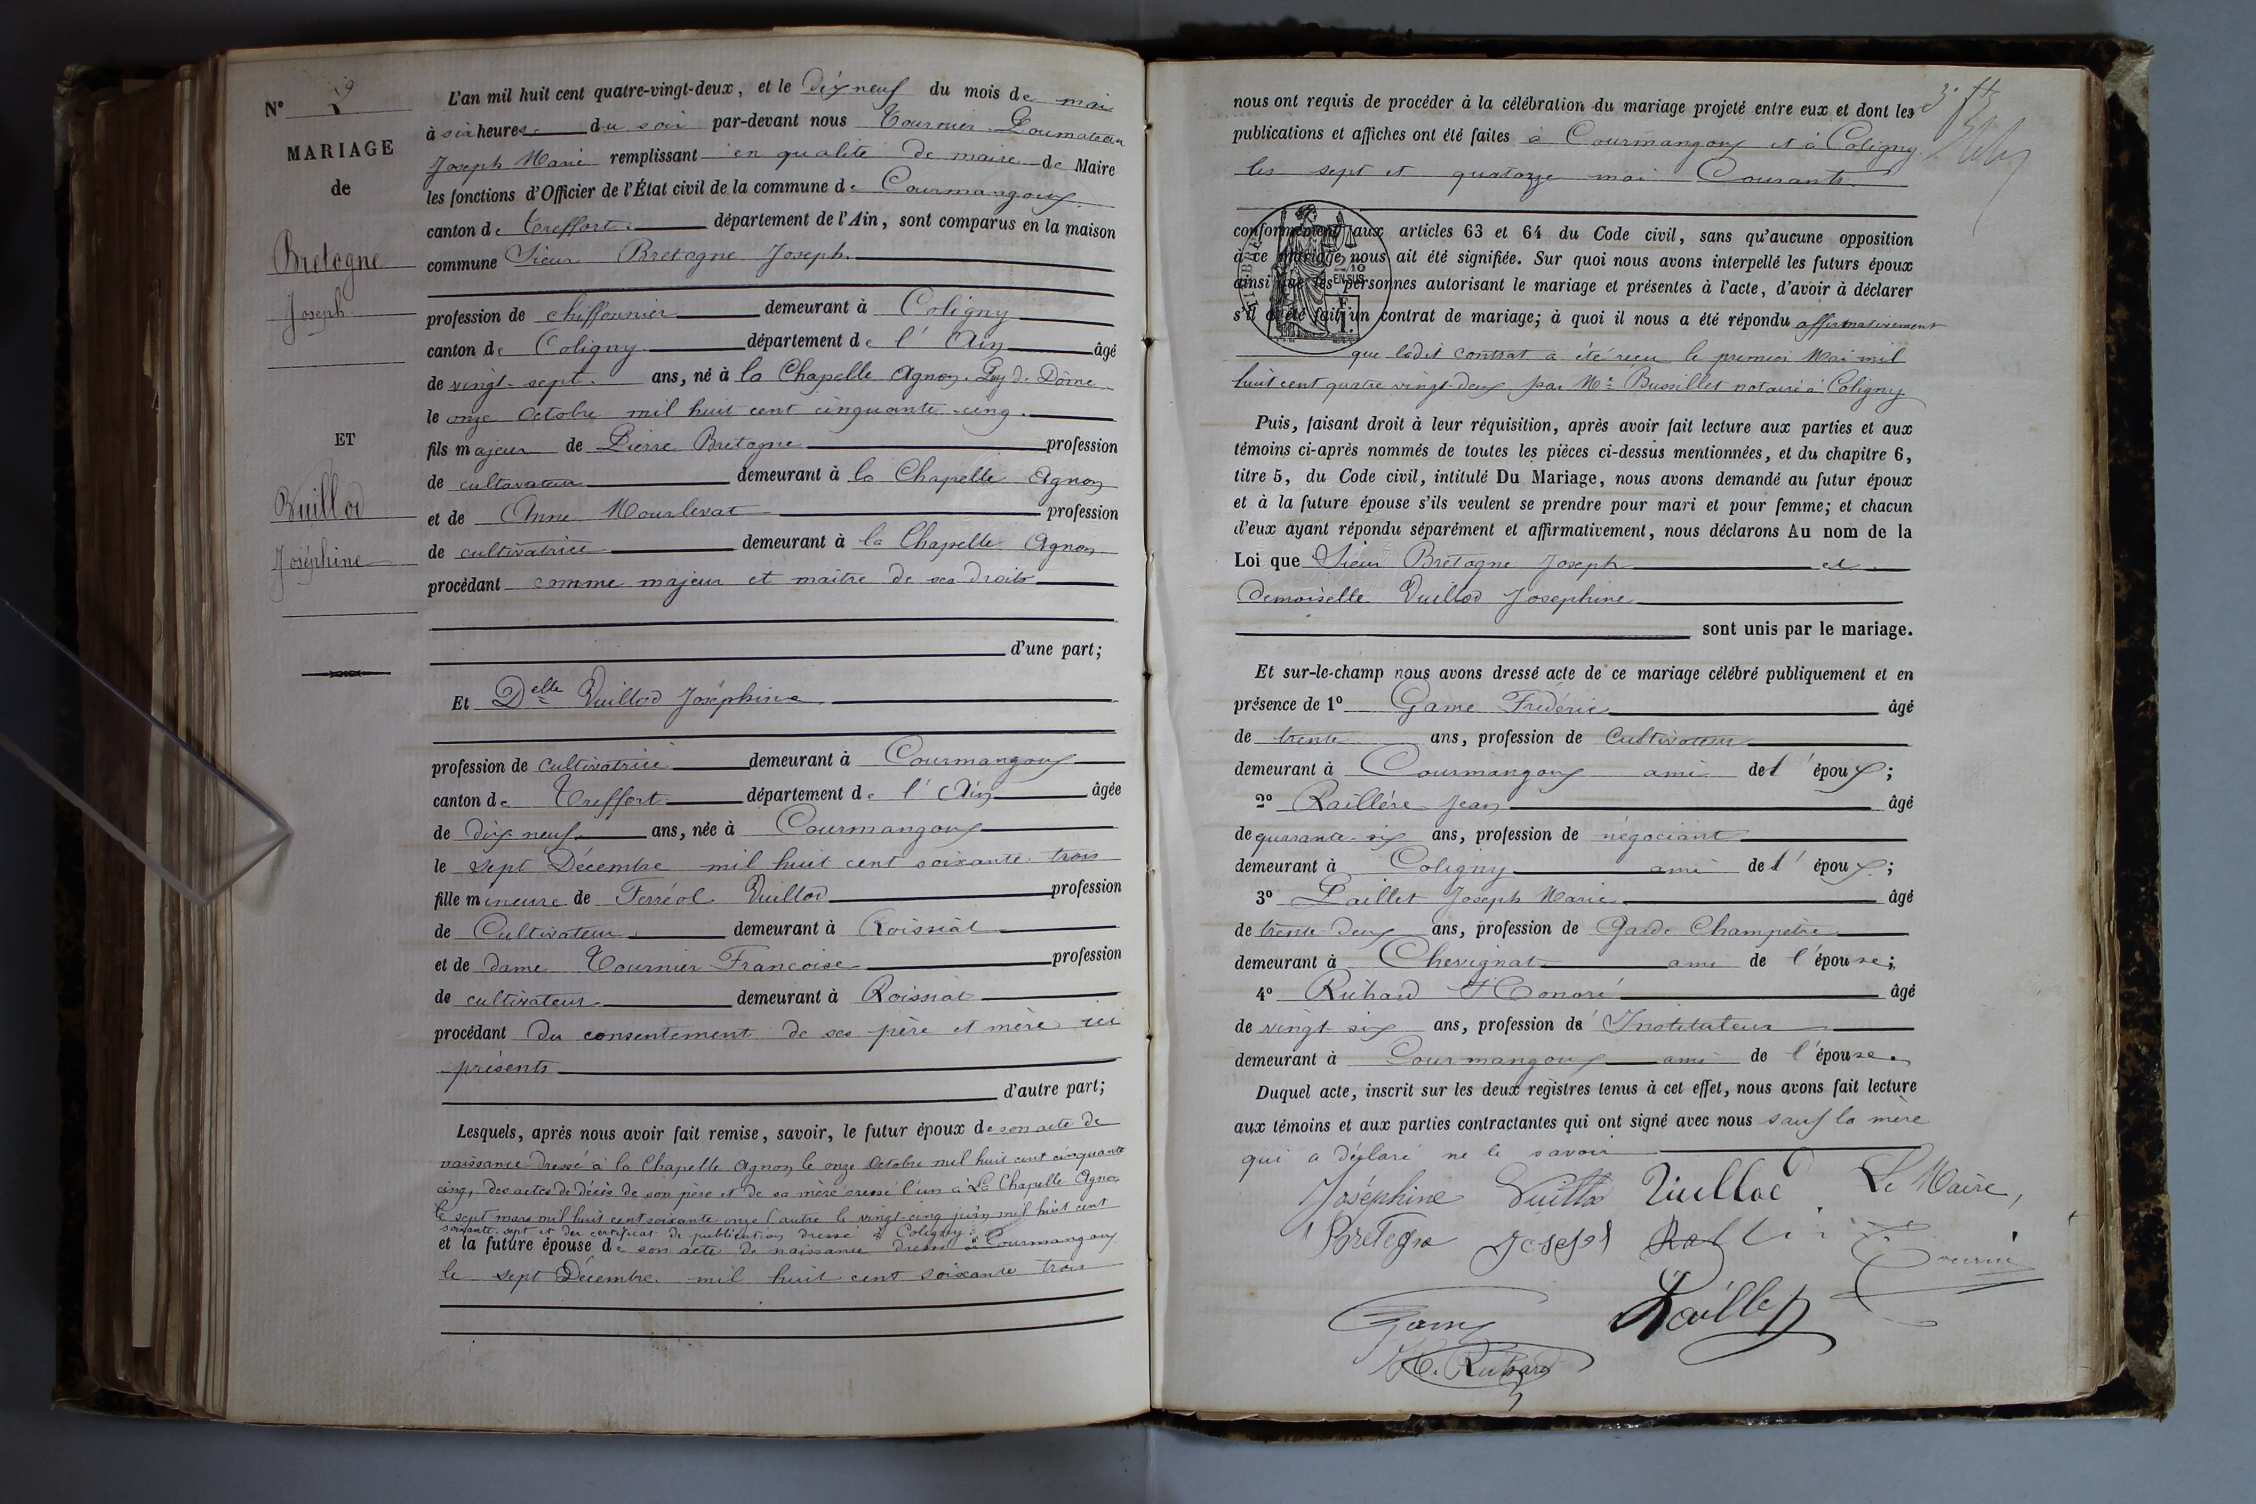 N°
MARIAGE
de
Bretogne
Joseph
ET
Vuillod
Joséphine
L'an mil huit cent quatre-vingt-deux, et le dix neuf du mois de mai
à six heures du soir par-devant nous Tournier
Joseph Marie remplissant en qualité de maire de Maire
les fonctions d'Officier de l'État civil de la commune de Courmangoux
canton de Treffort département de l'Ain, sont comparus en la maison
commune Sieur Bretogne Joseph
profession de chiffonnier demeurant à Coligny
canton de Coligny département de l'Ain âgé
de vingt-sept ans, né à la Chapelle Agnon. Puy de Dôme
le onze Octobre mil huit cent cinquante-cinq.
fils majeur de Pierre Bretogne profession
de cultivateur demeurant à la Chapelle Agnon
et de Anne Mourlevat profession
de cultivatrice demeurant à la Chapelle Agnon
procédant comme majeur et maître de ses droits
d'une part;
Et Delle Vuillod Joséphine
profession de cultivatrice demeurant à Courmangoux
canton de Treffort département de l'Ain âgée
de dix neuf ans, née à Courmangoux
le sept Décembre mil huit cent soixante trois
fille mineure de Ferréol Vuillod profession
de Cultivateur demeurant à Roissiat
et de dame Tournier Francoise profession
de cultivateur demeurant à Roissiat
procédant du consentement de ses père et mère ici
présents
d'autre part;
Lesquels, après nous avoir fait remise, savoir, le futur époux de son acte de
naissance dressé à la Chapelle Agnon le onze Octobre mil huit cent cinquante
cinq, des actes de décès de son père et de sa mère dressé l'un à La Chapelle Agnon
le sept mars mil huit cent soixante onze l'autre le vingt cinq juin mil huit cent
soixante-sept et du certificat de publication dressé à Coligny
et la future épouse de son acte de naissance dressé à Courmangoux
le sept Décembre mil huit cent soixante trois
nous ont requis de procéder à la célébration du mariage projeté entre eux et dont les
publications et affiches ont été faites à Courmangoux et à Coligny
les sept et quatorze mai Courants.
conformément aux articles 63 et 64 du Code civil, sans qu'aucune opposition
à ce mariage nous ait été signifiée. Sur quoi nous avons interpellé les futurs époux
ainsi que les personnes autorisant le mariage et présentes à l'acte, d'avoir à déclarer
s'il a été fait un contrat de mariage; à quoi il nous a été répondu affirmativement
que ledit contrat a été reçu le premier Mai mil
huit cent quatre vingt-deux par Me Bussillet notaire à Coligny
Puis, faisant droit à leur réquisition, après avoir fait lecture aux parties et aux
témoins ci-après nommés de toutes les pièces ci-dessus mentionnées, et du chapitre 6,
titre 5, du Code civil, intitulé Du Mariage, nous avons demandé au futur époux
et à la future épouse s'ils veulent se prendre pour mari et pour femme; et chacun
d'eux ayant répondu séparément et affirmativement, nous déclarons Au nom de la
Loi que Sieur Bretogne Joseph et
Demoiselle Vuillod Josephine
sont unis par le mariage.
Et sur-le-champ nous avons dressé acte de ce mariage célébré publiquement et en
présence de 1° Game Frédéric âgé
de trente ans, profession de Cultivateur
demeurant à Courmangoux ami de l'époux;
2° Raillére Jean âgé
de quarante-six ans, profession de négociant
demeurant à Coligny ami de l'époux;
3° Paillet Joseph Marie âgé
de trente-deux ans, profession de Garde Champêtre
demeurant à Chevignat ami de l'épouse;
4° Ruhard Honoré âgé
de vingt-six ans, profession de Instituteur
demeurant à Courmangoux ami de l'épouse.
Duquel acte, inscrit sur les deux registres tenus à cet effet, nous avons fait lecture
aux témoins et aux parties contractantes qui ont signé avec nous sauf la mère
qui a déclaré ne le savoir
Joséphine Vuillod Vuillod Le Maire,
Bretogne Joseph
Tournier
Game
Paillet
H. Ruhard